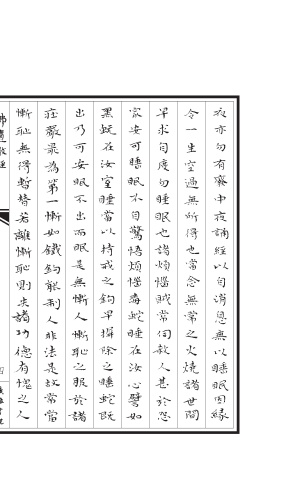 夜亦勿有廢中夜誦經以自消息無以睡眠因緣
令一生空過無所得也當念無常之火燒諸世間
早求自度勿睡眠也諸煩惱賊常伺殺人甚於怨
家安可睡眠不自驚悟煩惱毒蛇睡在汝心譬如
黑蚖在汝室睡當以持戒之鉤早摒除之睡蛇既
出乃可安眠不出而眠是無慚人慚恥之服於諸
莊嚴最為第一慚如鐵鉤能制人非法是故常當
慚恥無得暫替若離慚恥則失諸功德有愧之人
佛遺教經